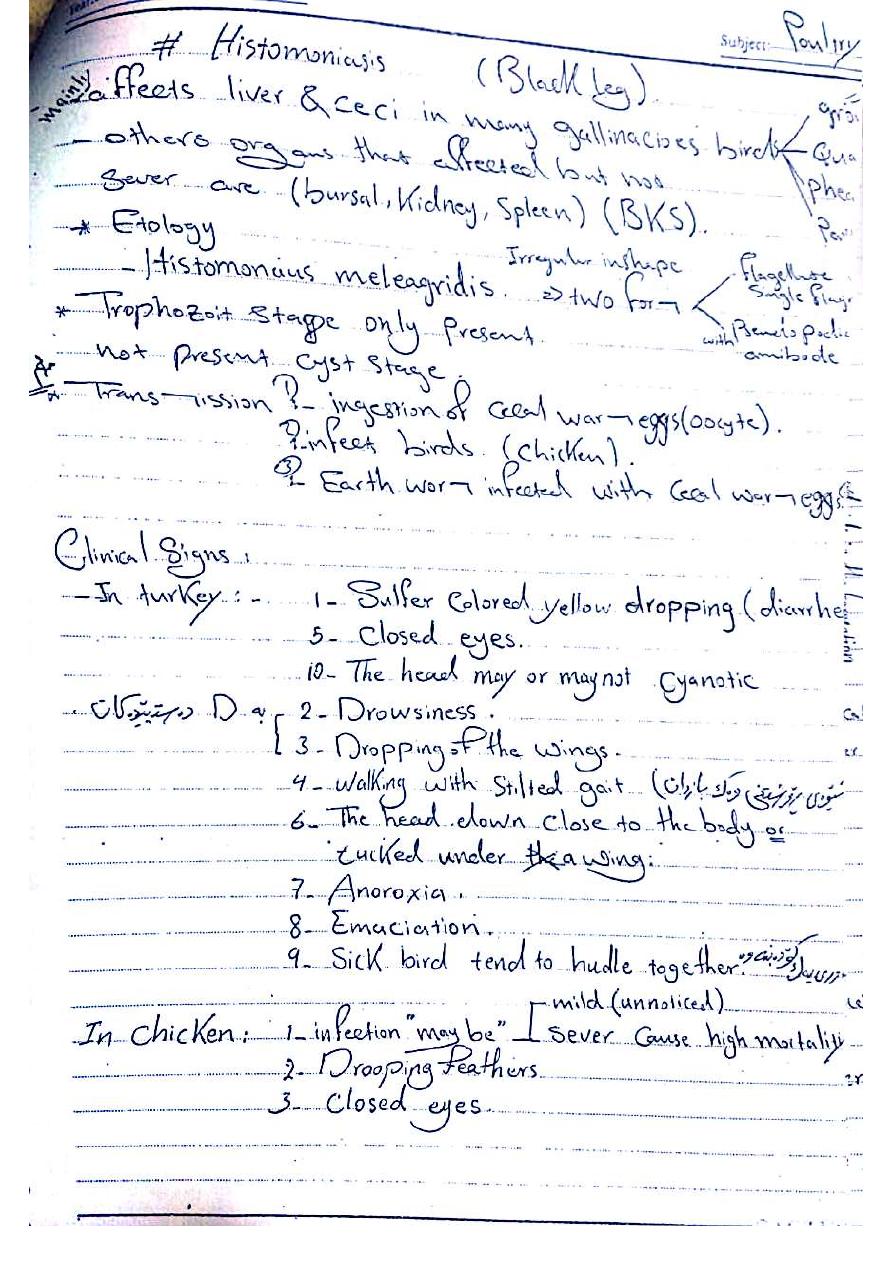 Subject: Poultry
# Histomoniasis (Black leg)
mainly affects liver & ceci in many gallinacises birds
- others organs that affected but not
sever are (bursal, Kidney, Spleen) (BKS).
* Etology
- Histomonaus meleagridis. Irregular in shape => two form
Flagellate
Single flag
with Pseudopodic
amibode
* Trophozoit stage only present.
not present cyst stage.
* Transmission 1- ingestion of cecal worm eggs (oocyte).
2- infect birds. (chicken).
3- Earth worm infected with cecal worm eggs
Clinical Signs:
- In turkey: - 1- Sulfer colored yellow dropping (diarrhe
5- Closed eyes.
10- The head may or may not cyanotic
D 2- Drowsiness.
3- Dropping of the wings.
4- walking with stilted gait
6- The head down close to the body or
tucked under a wing.
7- Anoroxia.
8- Emaciation.
9- Sick bird tend to hudle together.
In chicken: 1- infection "may be" mild (unnoticed)
sever cause high mortality
2- Drooping feathers
3- Closed eyes.